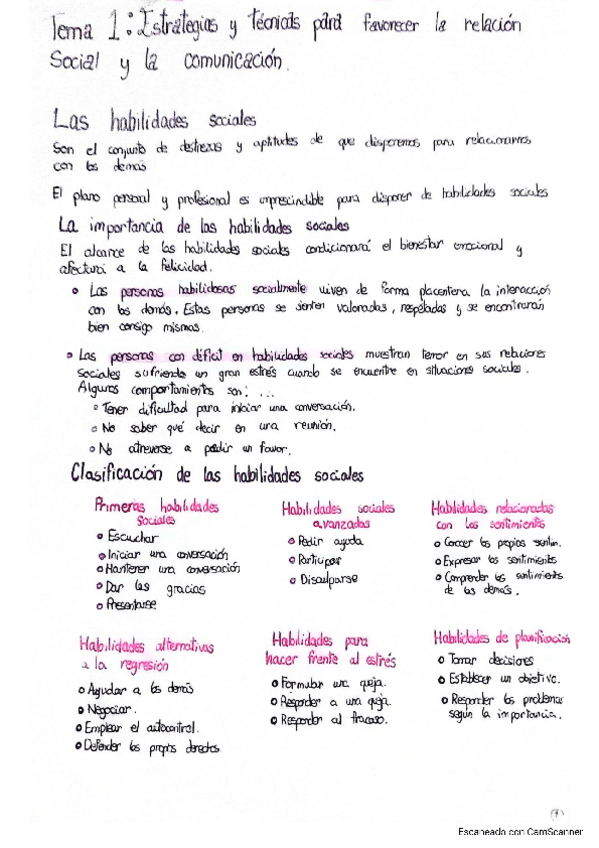 Tema 1: Estrategias y técnicas para favorecer la relación
Social y la comunicación.
Las habilidades sociales
Son el conjunto de destrezas y aptitudes de que disponemos para relacionarnos
con los demás
El plano personal y profesional es imprescindible para disponer de habilidades sociales
La importancia de las habilidades sociales
El alcance de las habilidades sociales condicionará el bienestar emocional y
afectará a la felicidad.
• Las personas habilidosas socialmente viven de forma placentera la interacción
con los demás. Estas personas se sienten valoradas, respetadas y se encontrarán
bien consigo mismas.
• Las personas con déficit en habilidades sociales muestran terror en sus relaciones
sociales sufriendo un gran estrés cuando se encuentre en situaciones sociales.
Algunos comportamientos son: ...
• Tener dificultad para iniciar una conversación.
• No saber qué decir en una reunión.
• No atreverse a pedir un favor.
Clasificación de las habilidades sociales
Primeras habilidades
Sociales
• Escuchar
• Iniciar una conversación
• Mantener una conversación
• Dar las gracias
• Presentarse
Habilidades sociales
avanzadas
• Pedir ayuda
• Participar
• Disculparse
Habilidades relacionadas
con los sentimientos
• Conocer los propios sentim.
• Expresar los sentimientos
• Comprender los sentimientos
de los demás.
Habilidades alternativas
a la regresión
• Ayudar a los demás
• Negociar.
• Emplear el autocontrol.
• Defender los propios derechos
Habilidades para
hacer frente al estrés
• Formular una queja.
• Responder a una queja.
• Responder al fracaso.
Habilidades de planificación
• Tomar decisiones
• Establecer un objetivo.
• Responder los problemas
según la importancia.
1
Escaneado con CamScanner